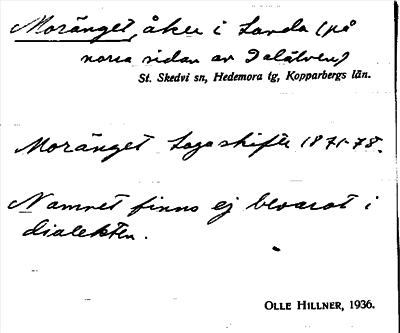 Moränget, åker i Landa (på
norra sidan av Dalälven)
St. Skedvi sn, Hedemora tg, Kopparbergs län.
Moränget Lagaskifte 1871-78.
Namnet finns ej bevarat i
dialekten.
OLLE HILLNER, 1936.